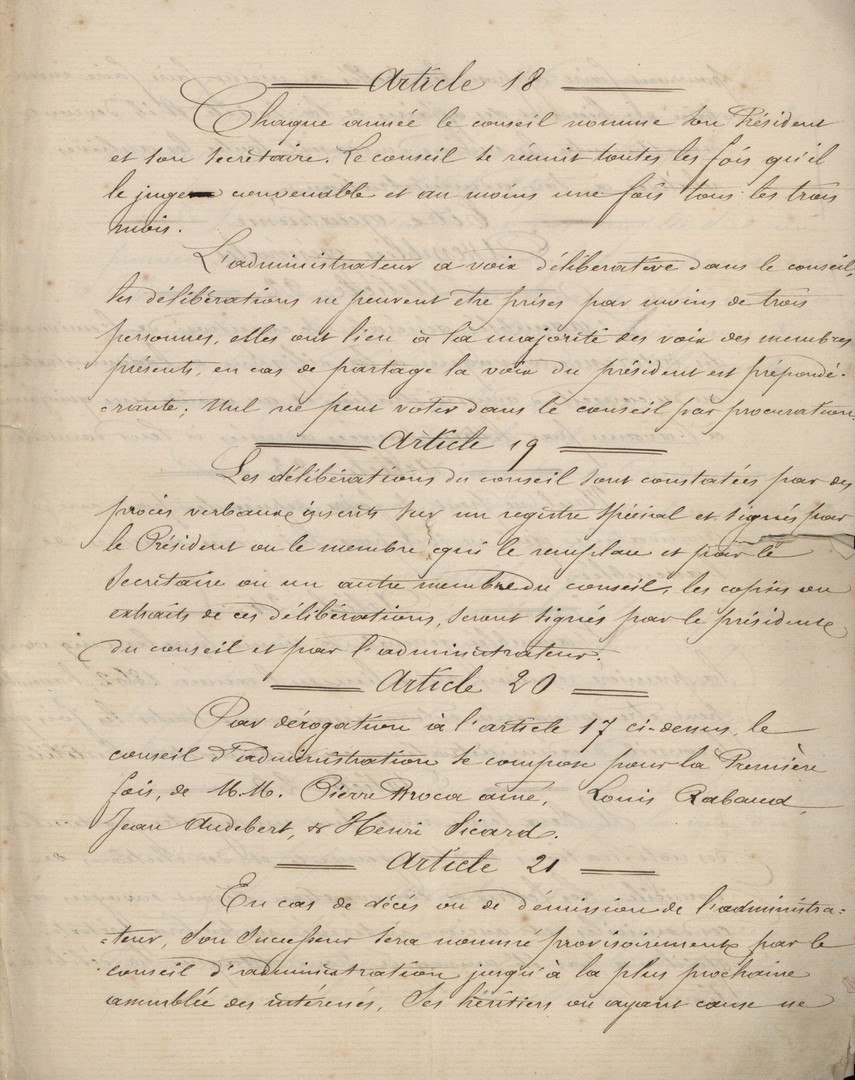 Article 18
Chaque année le conseil nomme son Président
et son secrétaire. Le conseil se réunit toutes les fois qu'il
le juge convenable et au moins une fois tous les trois
mois.
L'administrateur a voix délibérative dans le conseil,
les délibérations ne peuvent etre prises par moins de trois
personnes, elles ont lieu à la majorité des voix des membres
présents, en cas de partage la voix du président est prépondé-
-rante; Nul ne peut voter dans le conseil par procuration.
Article 19
Les délibérations du conseil sont constatées par des
procès verbaux inscrits sur un registre spécial et signés par
le Président ou le membre qui le remplace et par le
secrétaire ou un autre membre du conseil, les copies ou
extraits de ces délibérations, seront signés par le président
du conseil et par l'administrateur.
Article 20
Par dérogation à l'article 17 ci-dessus, le
conseil d'administration se compose pour la Première
fois, de M.M. Pierre Proca ainé, Louis Rabaud,
Jean Audebert, & Henri Sicard.
Article 21
En cas de décés ou de démission de l'administra=
=teur, son successeur sera nommé provisoirement par le
conseil d'administration jusqu'à la plus prochaine
assemblée des intéressés, Ses héritiers ou ayant cause ne